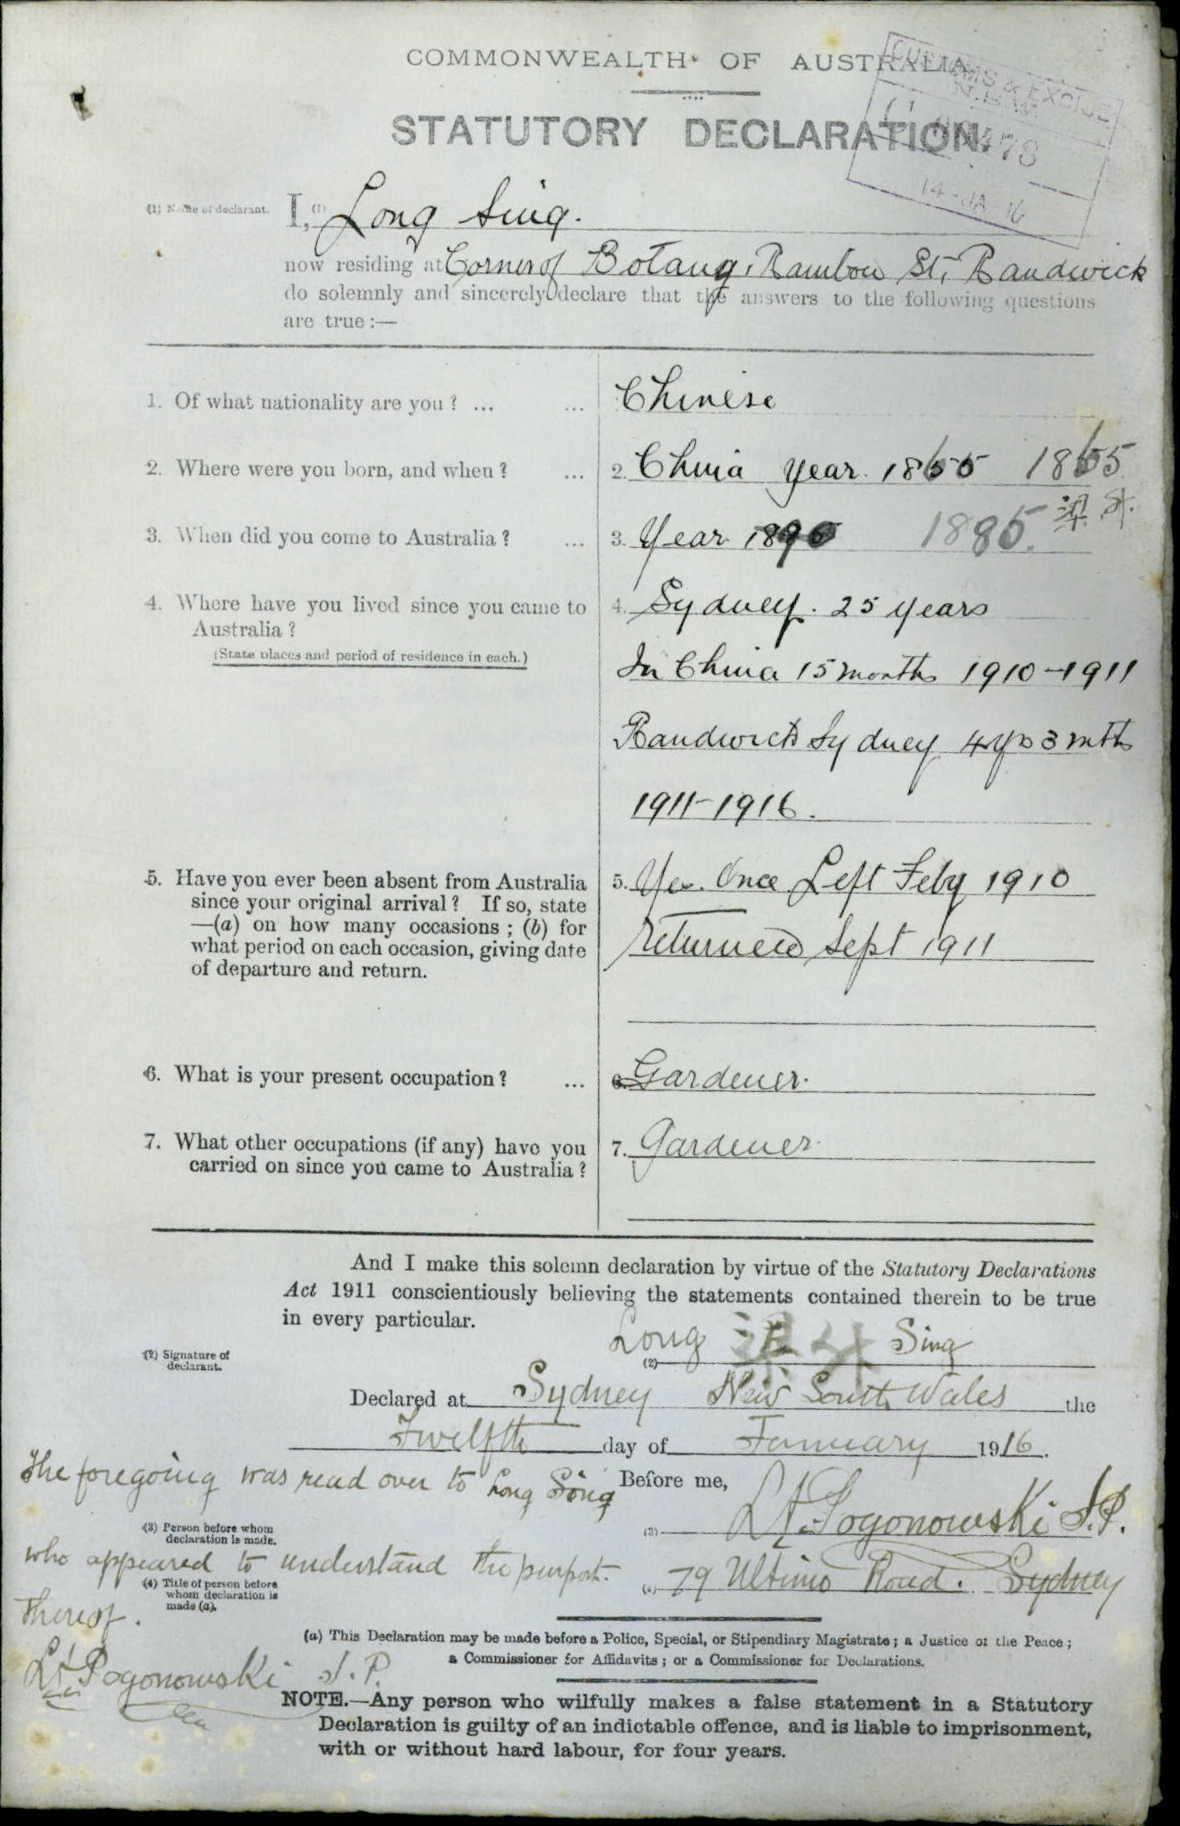 COMMONWEALTH OF AUSTRALIA
CUSTOMS & EXCISE
N.S.W.
14 - JA 16
STATUTORY DECLARATION.
(1) Name of declarant. I, (1) Long Sing.
now residing at Corner of Botany, Rainbow St, Randwick
do solemnly and sincerely declare that the answers to the following questions
are true :—
1. Of what nationality are you ? ... ... Chinese
2. Where were you born, and when ? ... 2. China year. 1865 1865
3. When did you come to Australia ? ... 3. Year 1890 1885.
4. Where have you lived since you came to 4. Sydney. 25 years
Australia ?
(State places and period of residence in each.)
In China 15 months 1910-1911
Randwick Sydney 4 yrs 3 mths
1911-1916.
5. Have you ever been absent from Australia 5. Yes. Once Left Feby 1910
since your original arrival ? If so, state
—(a) on how many occasions ; (b) for
what period on each occasion, giving date returned Sept 1911
of departure and return.
6. What is your present occupation ? ... 6. Gardener.
7. What other occupations (if any) have you 7. Gardener.
carried on since you came to Australia ?
And I make this solemn declaration by virtue of the Statutory Declarations
Act 1911 conscientiously believing the statements contained therein to be true
in every particular.
(2) Signature of
declarant.
(2) Long Sing
Declared at Sydney New South Wales the
Twelfth day of January 1916.
The foregoing was read over to Long Sing Before me,
(3) Person before whom
declaration is made.
(3) Pogonowski J.P.
who appeared to understand the purport
(4) Title of person before
whom declaration is
made (a).
(4) 79 Ultimo Road. Sydney
thereof.
(a) This Declaration may be made before a Police, Special, or Stipendiary Magistrate ; a Justice of the Peace ;
a Commissioner for Affidavits ; or a Commissioner for Declarations.
Pogonowski J.P.
NOTE.—Any person who wilfully makes a false statement in a Statutory
Declaration is guilty of an indictable offence, and is liable to imprisonment,
with or without hard labour, for four years.